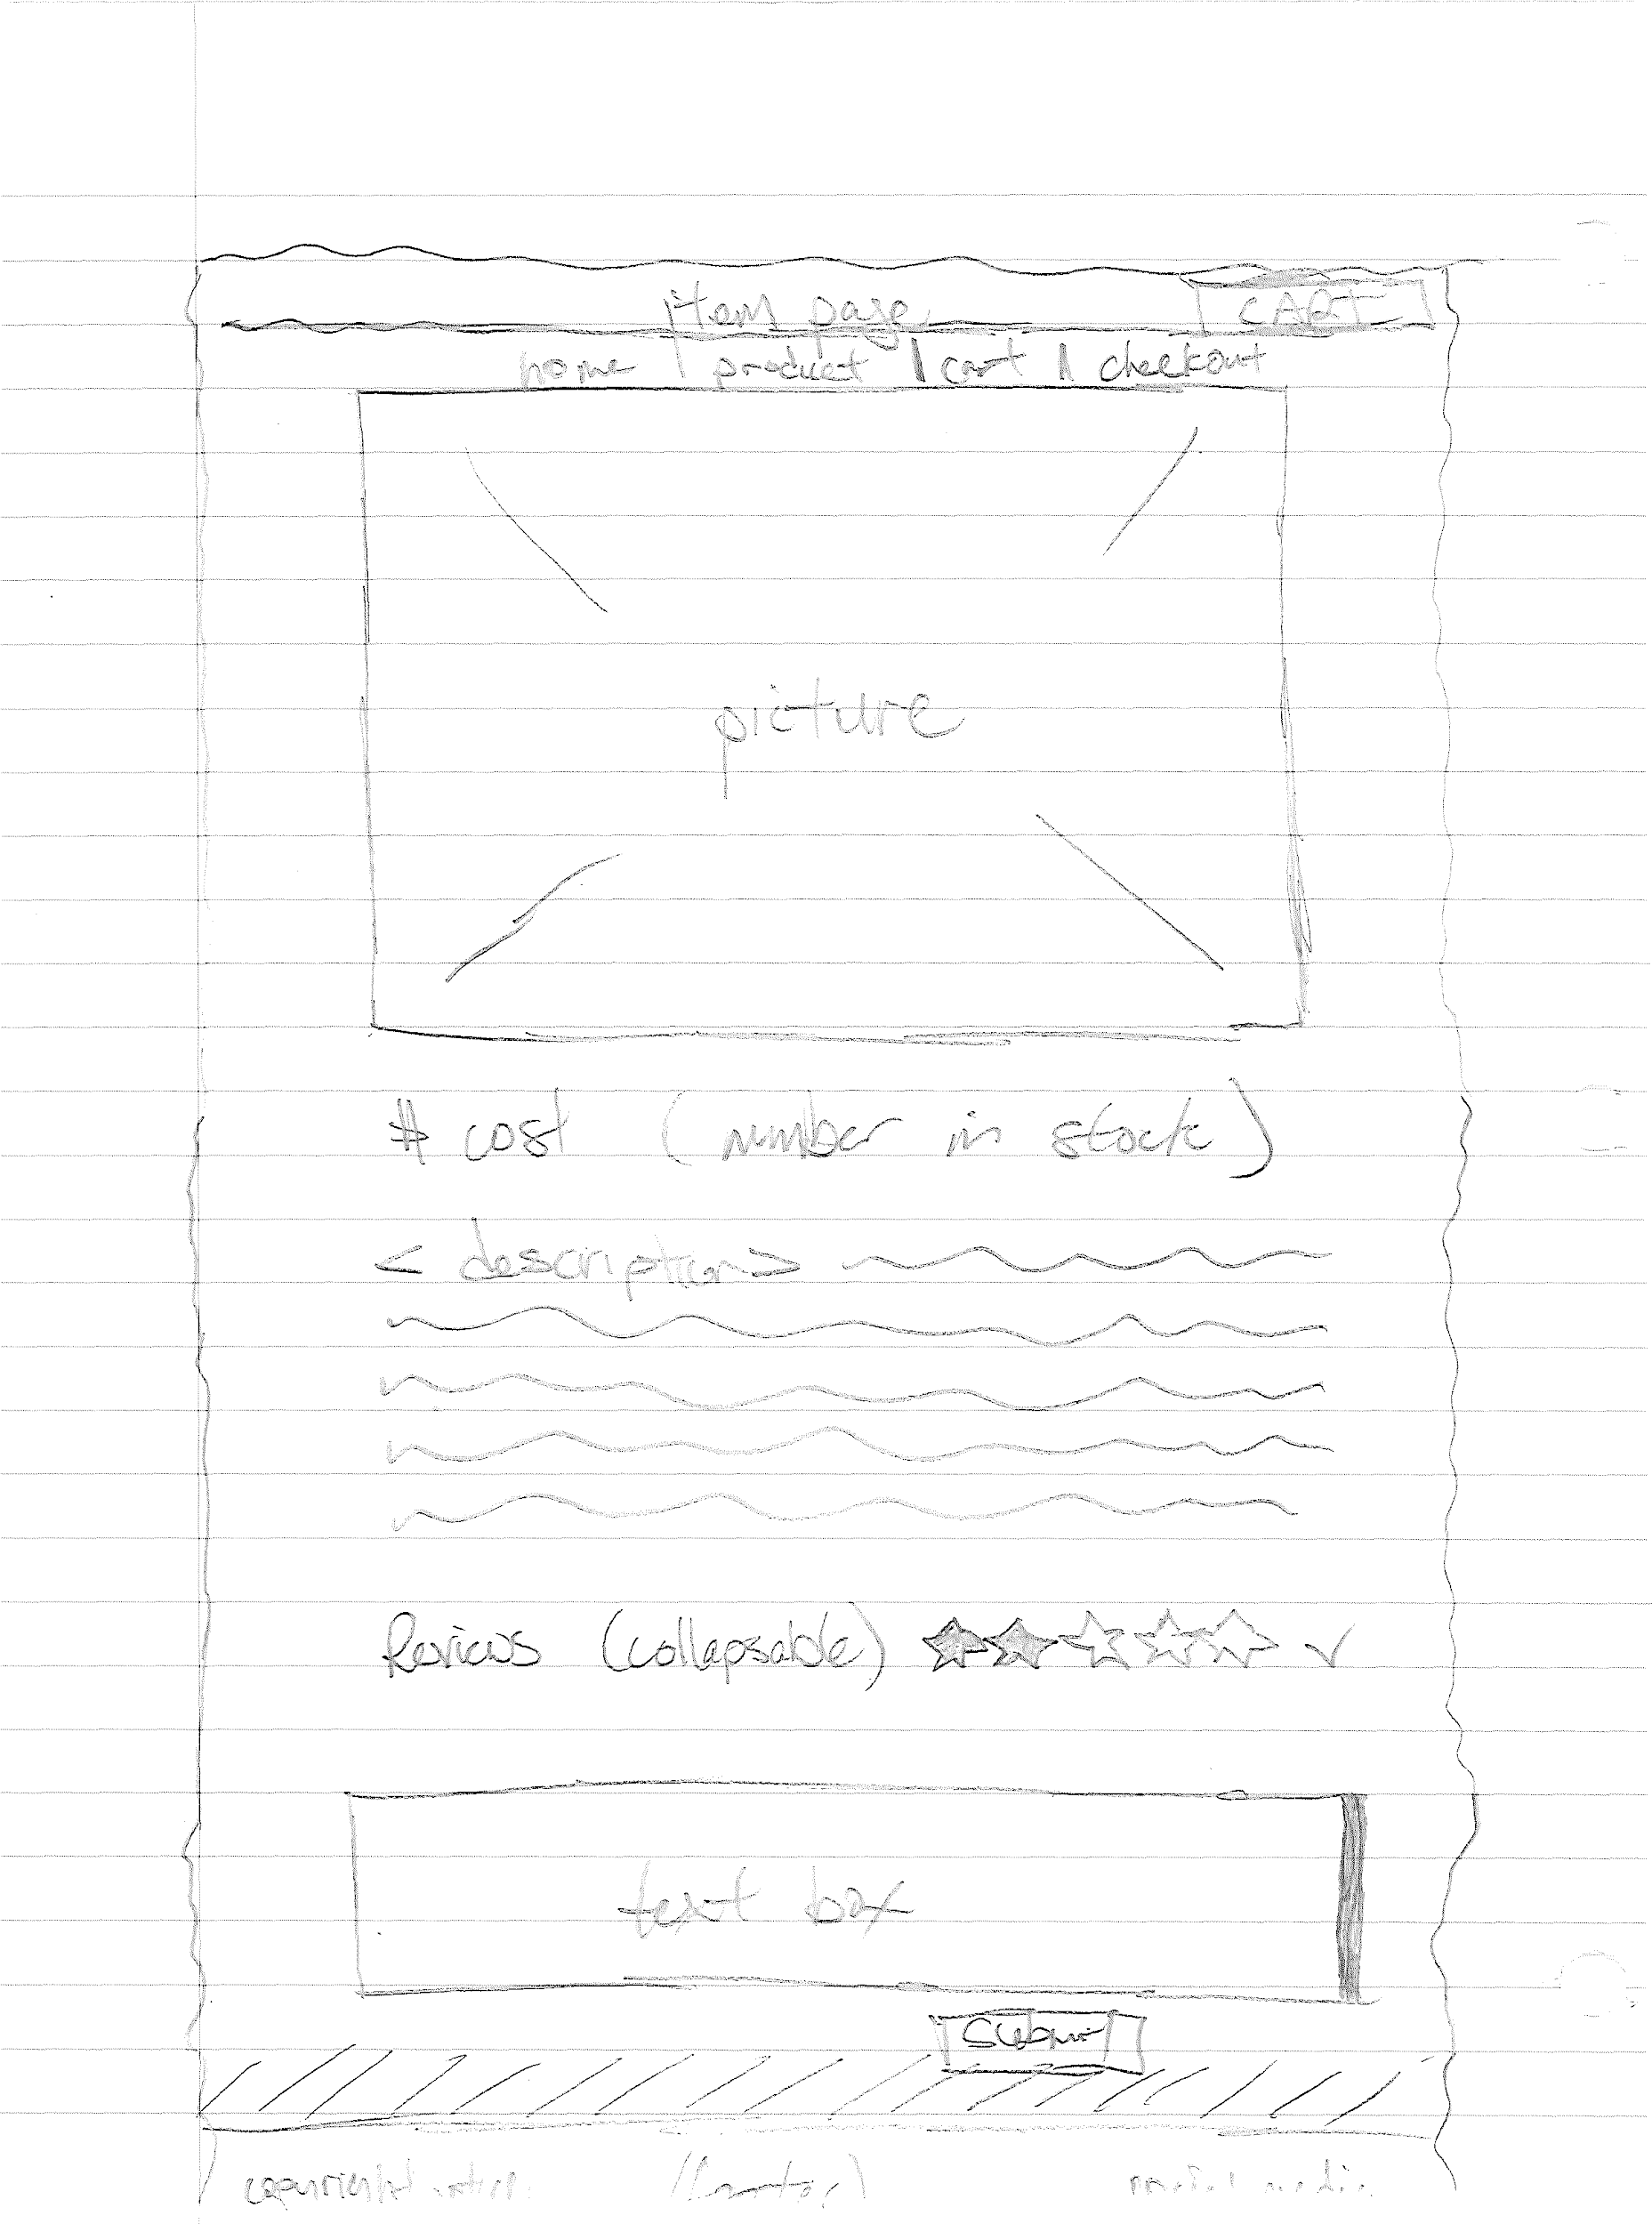 item page CART
home | product | cart | checkout
picture
# cost (number in stock)
<description>
Reviews (collapsable)
text box
Submit
copyright
social media